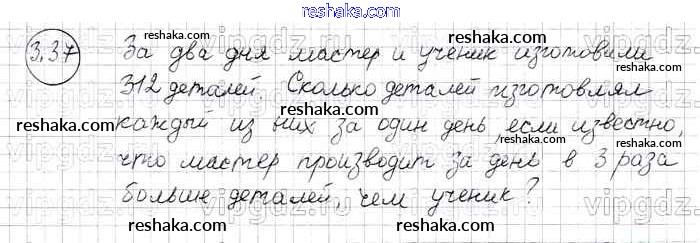 reshaka.com
3.37 За два дня мастер и ученик изготовили
312 деталей. Сколько деталей изготовлял
каждый из них за один день, если известно,
что мастер производит за день в 3 раза
больше деталей, чем ученик?
reshaka.com
reshaka.com
reshaka.com
reshaka.com
reshaka.com
reshaka.com
reshaka.com
reshaka.com